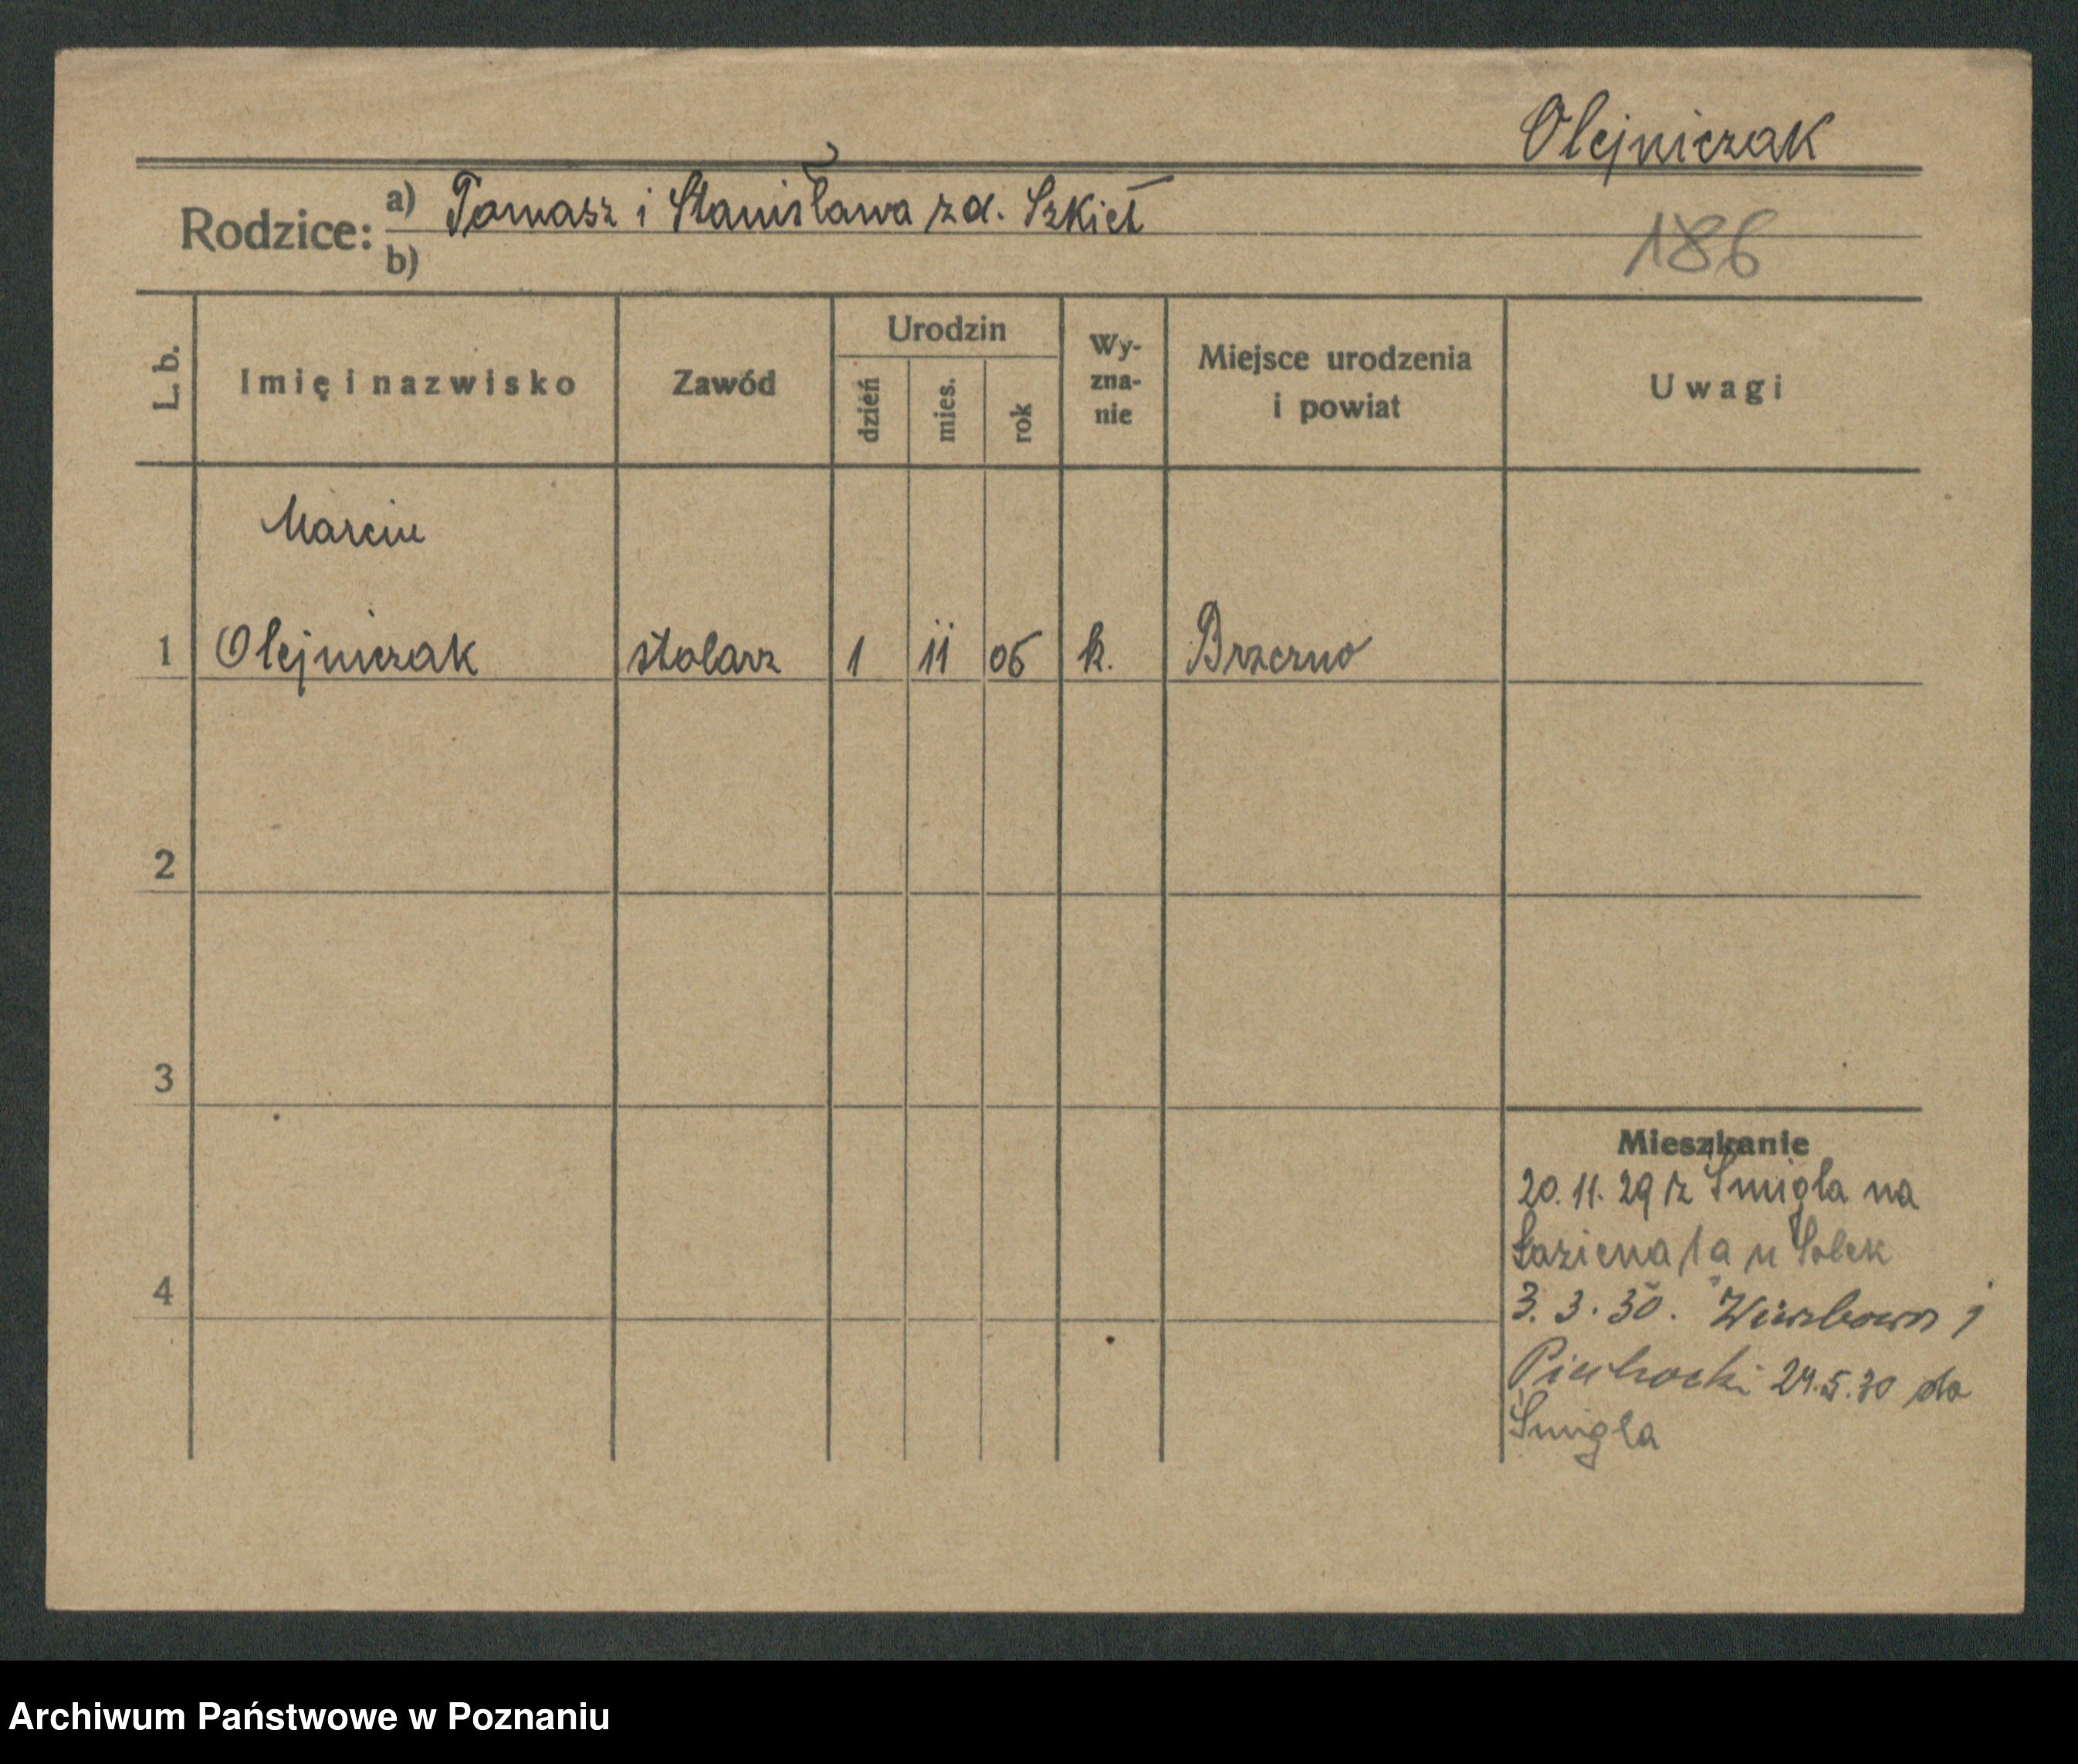 Olejniczak
Rodzice: a) Tomasz i Stanisława zd. Szkiet
b)
186
L. b.
Imię i nazwisko
Zawód
Urodzin
dzień
mies.
rok
Wy-
zna-
nie
Miejsce urodzenia
i powiat
Uwagi
Marcin
1 Olejniczak stolarz 1 11 06 k. Brzezno
2
3
4
Mieszkanie
20. 11. 29 z Śmigla na
Łazienna 1a u Solek
3. 3. 30. Wierzbowa 1
Piechocki 24.5.30 do
Śmigla
Archiwum Państwowe w Poznaniu